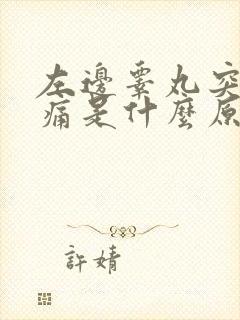 左邊睪丸突
痛是什麼原
許婧